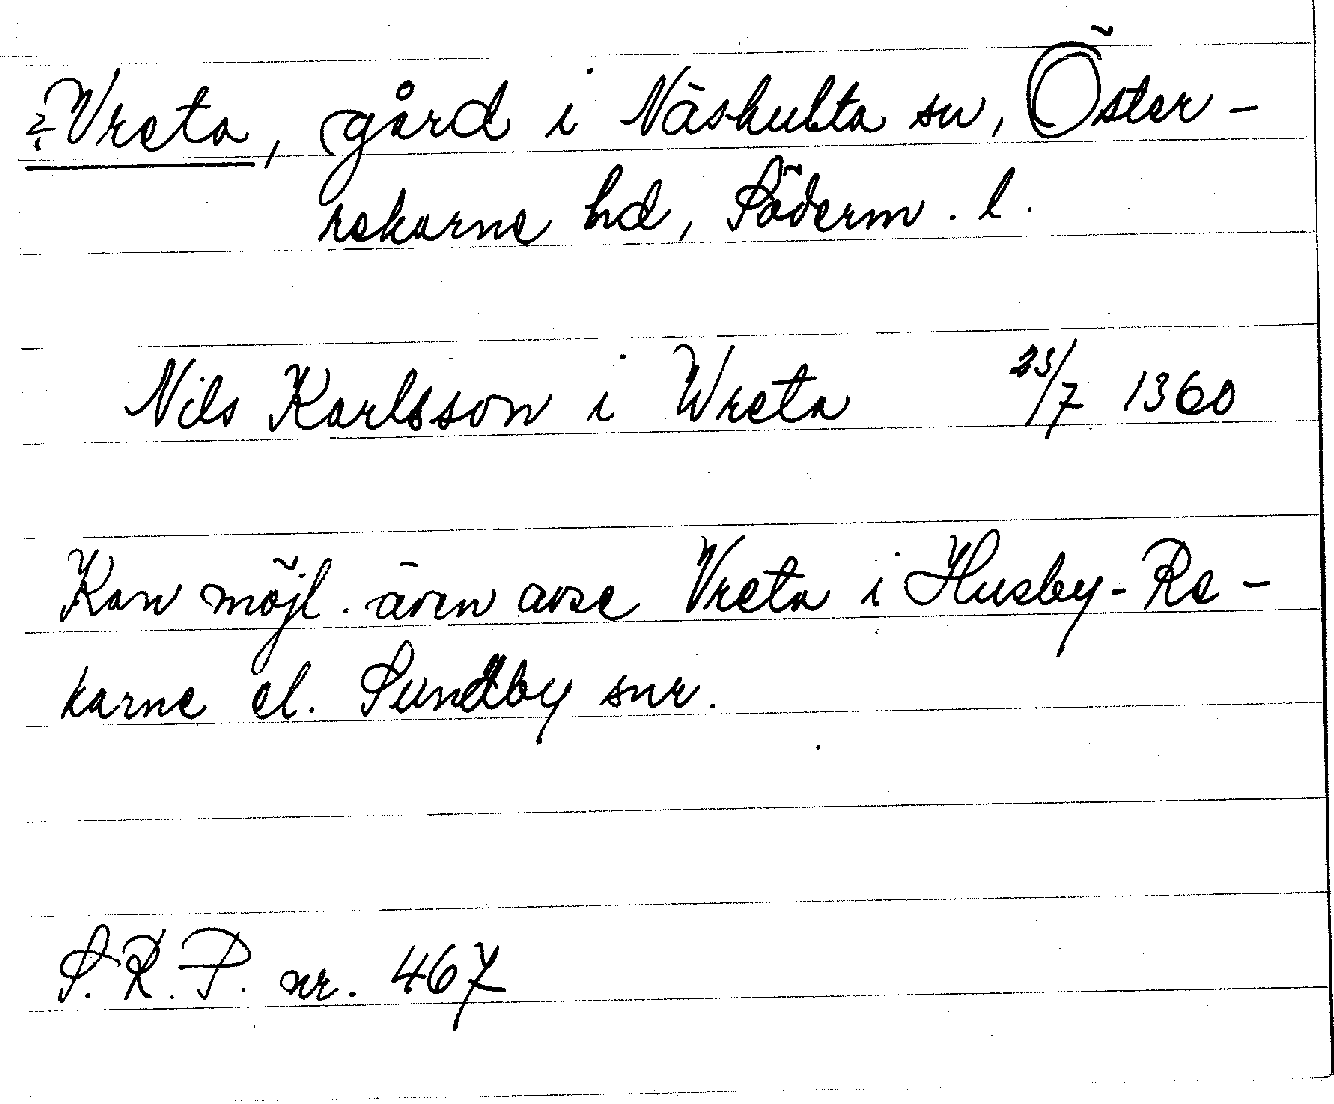 ? Vreta, gård i Näshulta sn, Öster-
rekarne hd, Söderm. l.
Nils Karlsson i Wreta 23/7 1360
Kan möjl. även avse Vreta i Husby-Re-
karne el. Sundby snr.
S.R.P. nr. 467